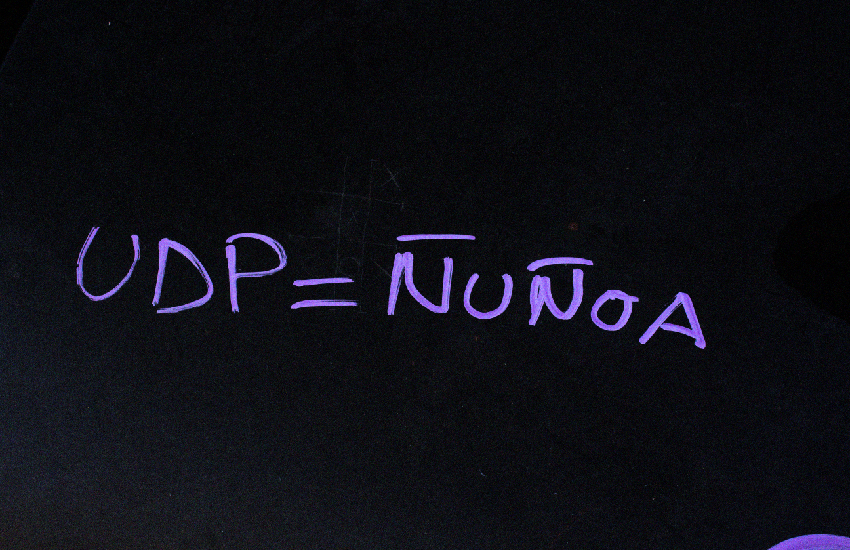 UDP=ÑUÑOA